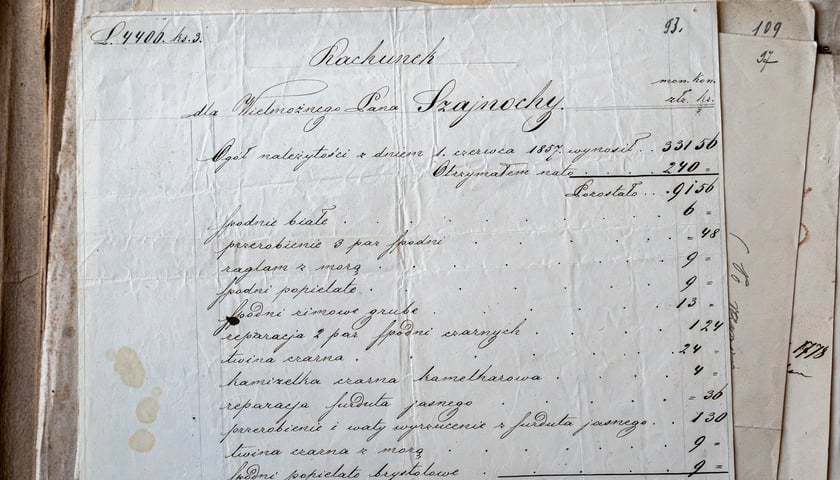 L. 4400. ks. 3.
93.
Rachunek
mon. kon.
dla Wielmożnego Pana Szajnochy. złr. ks.
Ogół należytości z dniem 1. czerwca 1857. wynosił . . 331 56
Otrzymałem na to . . . . . 240 =
Pozostało . . . 91 56
spodnie białe . . . . . . . 6 =
przerobienie 3 par spodni . . . . . = 48
raglam z morą . . . . . . . 9 =
spodni popielato . . . . . . . 9 =
spodni zimowe grube . . . . . . 13 =
reparacja 2 par spodni czarnych . . . . 1 24
twina czarna . . . . . . . 24 =
kamizelka czarna kamelharowa . . . . . 4 =
reparacja surduta jasnego . . . . . = 36
przerobienie i waty wyrzucenie z surduta jasnego . . 1 30
twina czarna z morą . . . . . . 9 =
spodni popielato brystolowe . 9 =
109
97
1778